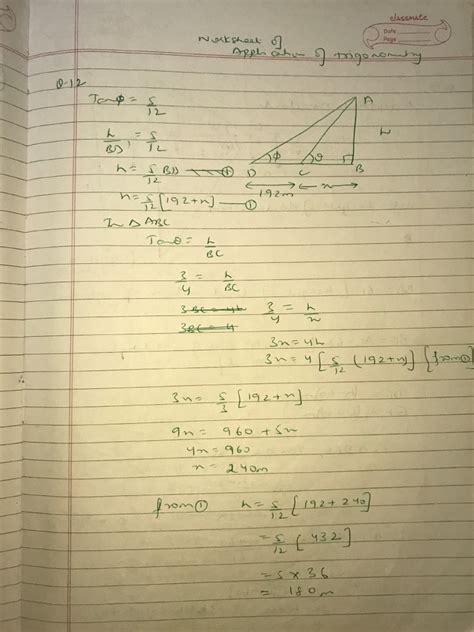 classmate
Date
Page
Worksheet of
Application of trigonometry
Q-12
Tanφ = 5/12
h/BD = 5/12
h = 5/12 BD — ①
h = 5/12 [192+x] — ①
In Δ ABC
Tanθ = h/BC
3/4 = h/BC
3BC = 4h
3BC = 4
3/4 = h/x
3x = 4h
3x = 4 [5/12 (192+x)] [from ①]
3x = 5/3 [192+x]
9x = 960 + 5x
4x = 960
x = 240m
from ① h = 5/12 [192 + 240]
= 5/12 [432]
= 5 × 36
= 180m
A
h
D φ C θ B
192m x